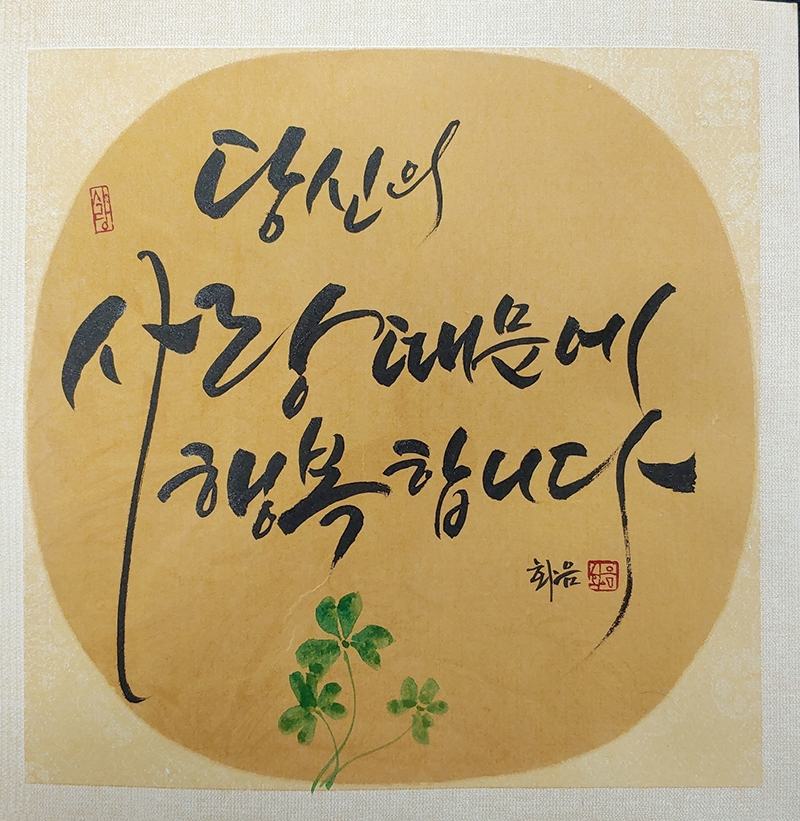 당신의
사랑
사랑 때문에
행복합니다
화음